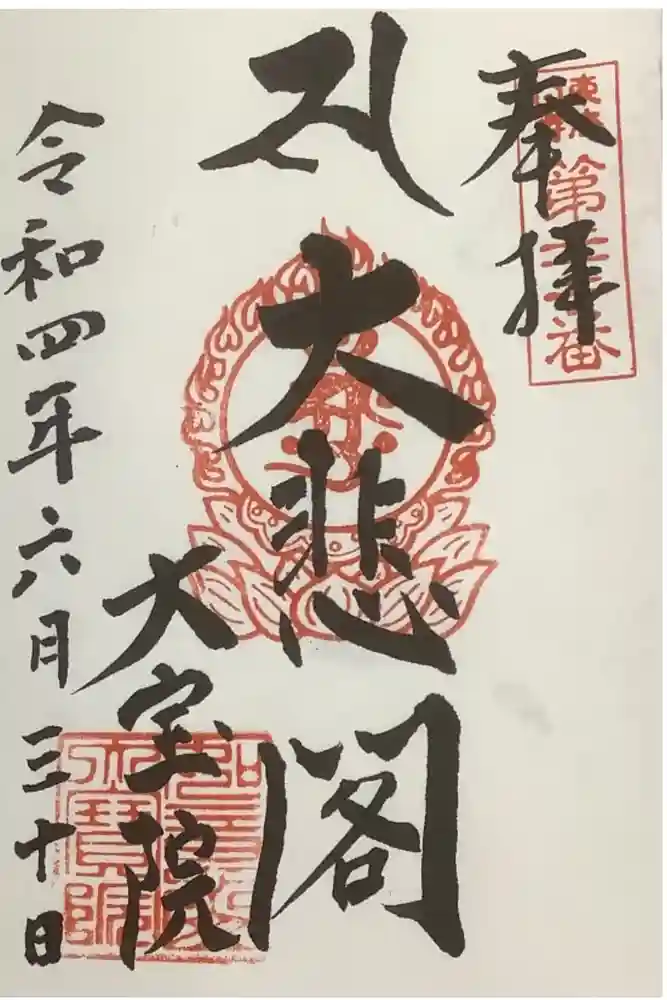 奉拝
第三番
大悲閣
大宝院
令和四年六月三十日
大寶院